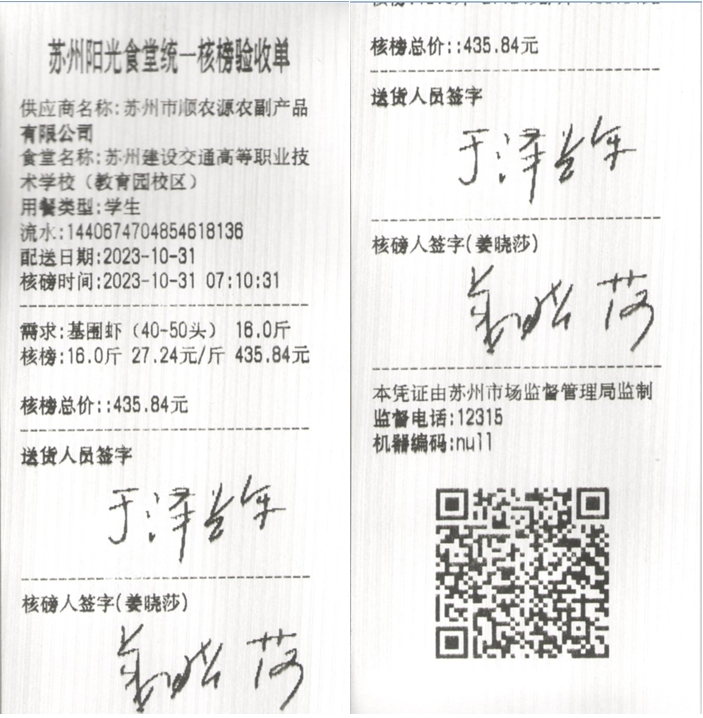 苏州阳光食堂统一核榜验收单
供应商名称:苏州市顺农源农副产品
有限公司
食堂名称:苏州建设交通高等职业技
术学校（教育园校区）
用餐类型:学生
流水:1440674704854618136
配送日期:2023-10-31
核磅时间:2023-10-31 07:10:31
需求:基围虾（40-50头） 16.0斤
核榜:16.0斤 27.24元/斤 435.84元
核榜总价::435.84元
送货人员签字
于泽
核磅人签字(姜晓莎)
姜晓莎
核榜总价::435.84元
送货人员签字
于泽
核磅人签字(姜晓莎)
姜晓莎
本凭证由苏州市场监督管理局监制
监督电话:12315
机器编码:null